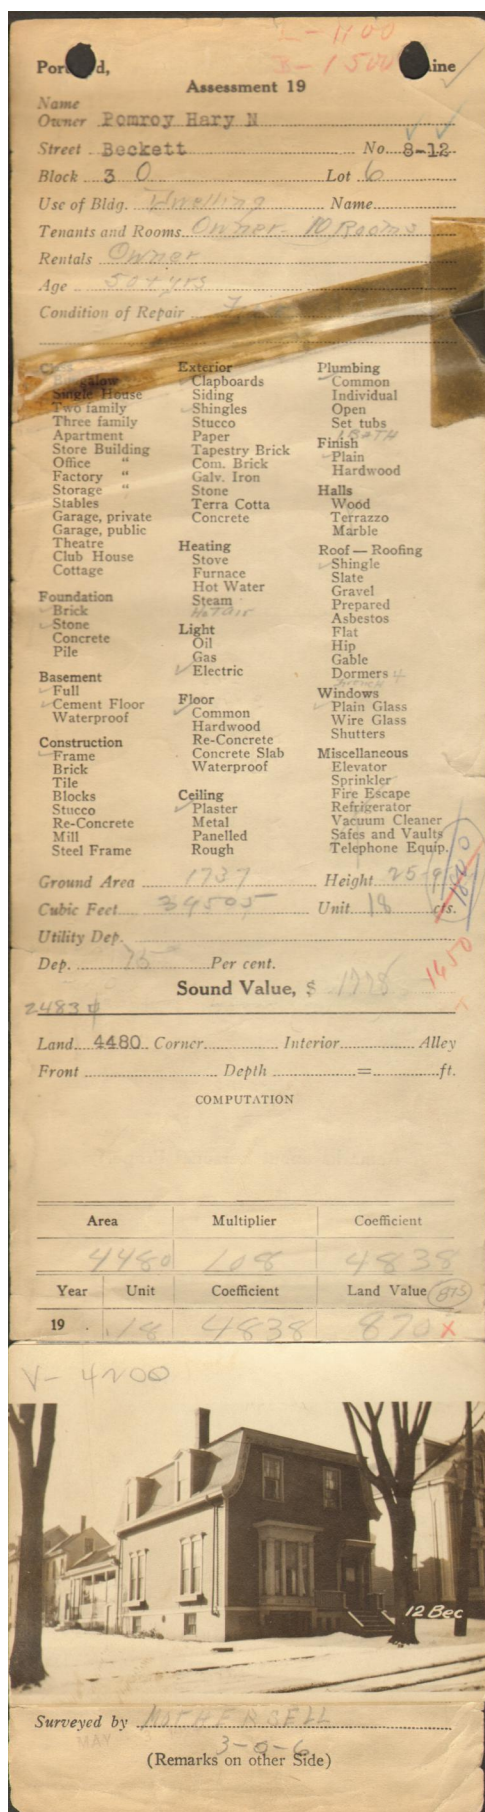 L-1100
B-1500
Portland, Maine
Assessment 19
Name
Owner Pomroy Hary N
Street Beckett No. 8-12
Block 3 0 Lot 6
Use of Bldg. Dwelling Name
Tenants and Rooms Owner- 10 Rooms
Rentals Owner
Age 50+yrs
Condition of Repair
Class
Bungalow
Single House
Two family
Three family
Apartment
Store Building
Office "
Factory "
Storage "
Stables
Garage, private
Garage, public
Theatre
Club House
Cottage
Foundation
Brick
Stone
Concrete
Pile
Basement
Full
Cement Floor
Waterproof
Construction
Frame
Brick
Tile
Blocks
Stucco
Re-Concrete
Mill
Steel Frame
Exterior
Clapboards
Siding
Shingles
Stucco
Paper
Tapestry Brick
Com. Brick
Galv. Iron
Stone
Terra Cotta
Concrete
Heating
Stove
Furnace
Hot Water
Steam
Hot Air
Light
Oil
Gas
Electric
Floor
Common
Hardwood
Re-Concrete
Concrete Slab
Waterproof
Ceiling
Plaster
Metal
Panelled
Rough
Plumbing
Common
Individual
Open
Set tubs
1 BATH
Finish
Plain
Hardwood
Halls
Wood
Terrazzo
Marble
Roof — Roofing
Shingle
Slate
Gravel
Prepared
Asbestos
Flat
Hip
Gable
Dormers 4
Windows
Plain Glass
Wire Glass
Shutters
Miscellaneous
Elevator
Sprinkler
Fire Escape
Refrigerator
Vacuum Cleaner
Safes and Vaults
Telephone Equip.
Ground Area 1737 Height 25-9
Cubic Feet 39505 Unit 18 cts.
Utility Dep.
Dep. 75 Per cent.
1450
Sound Value, $ 1778
2483
Land 4480 Corner Interior Alley
Front Depth = ft.
COMPUTATION
Area Multiplier Coefficient
4480 108 4838
Year Unit Coefficient Land Value 875
19 18 4838 870 x
V- 4200
12 Bec
Surveyed by MOTHERSELL
MAY
3-0-6
(Remarks on other Side)